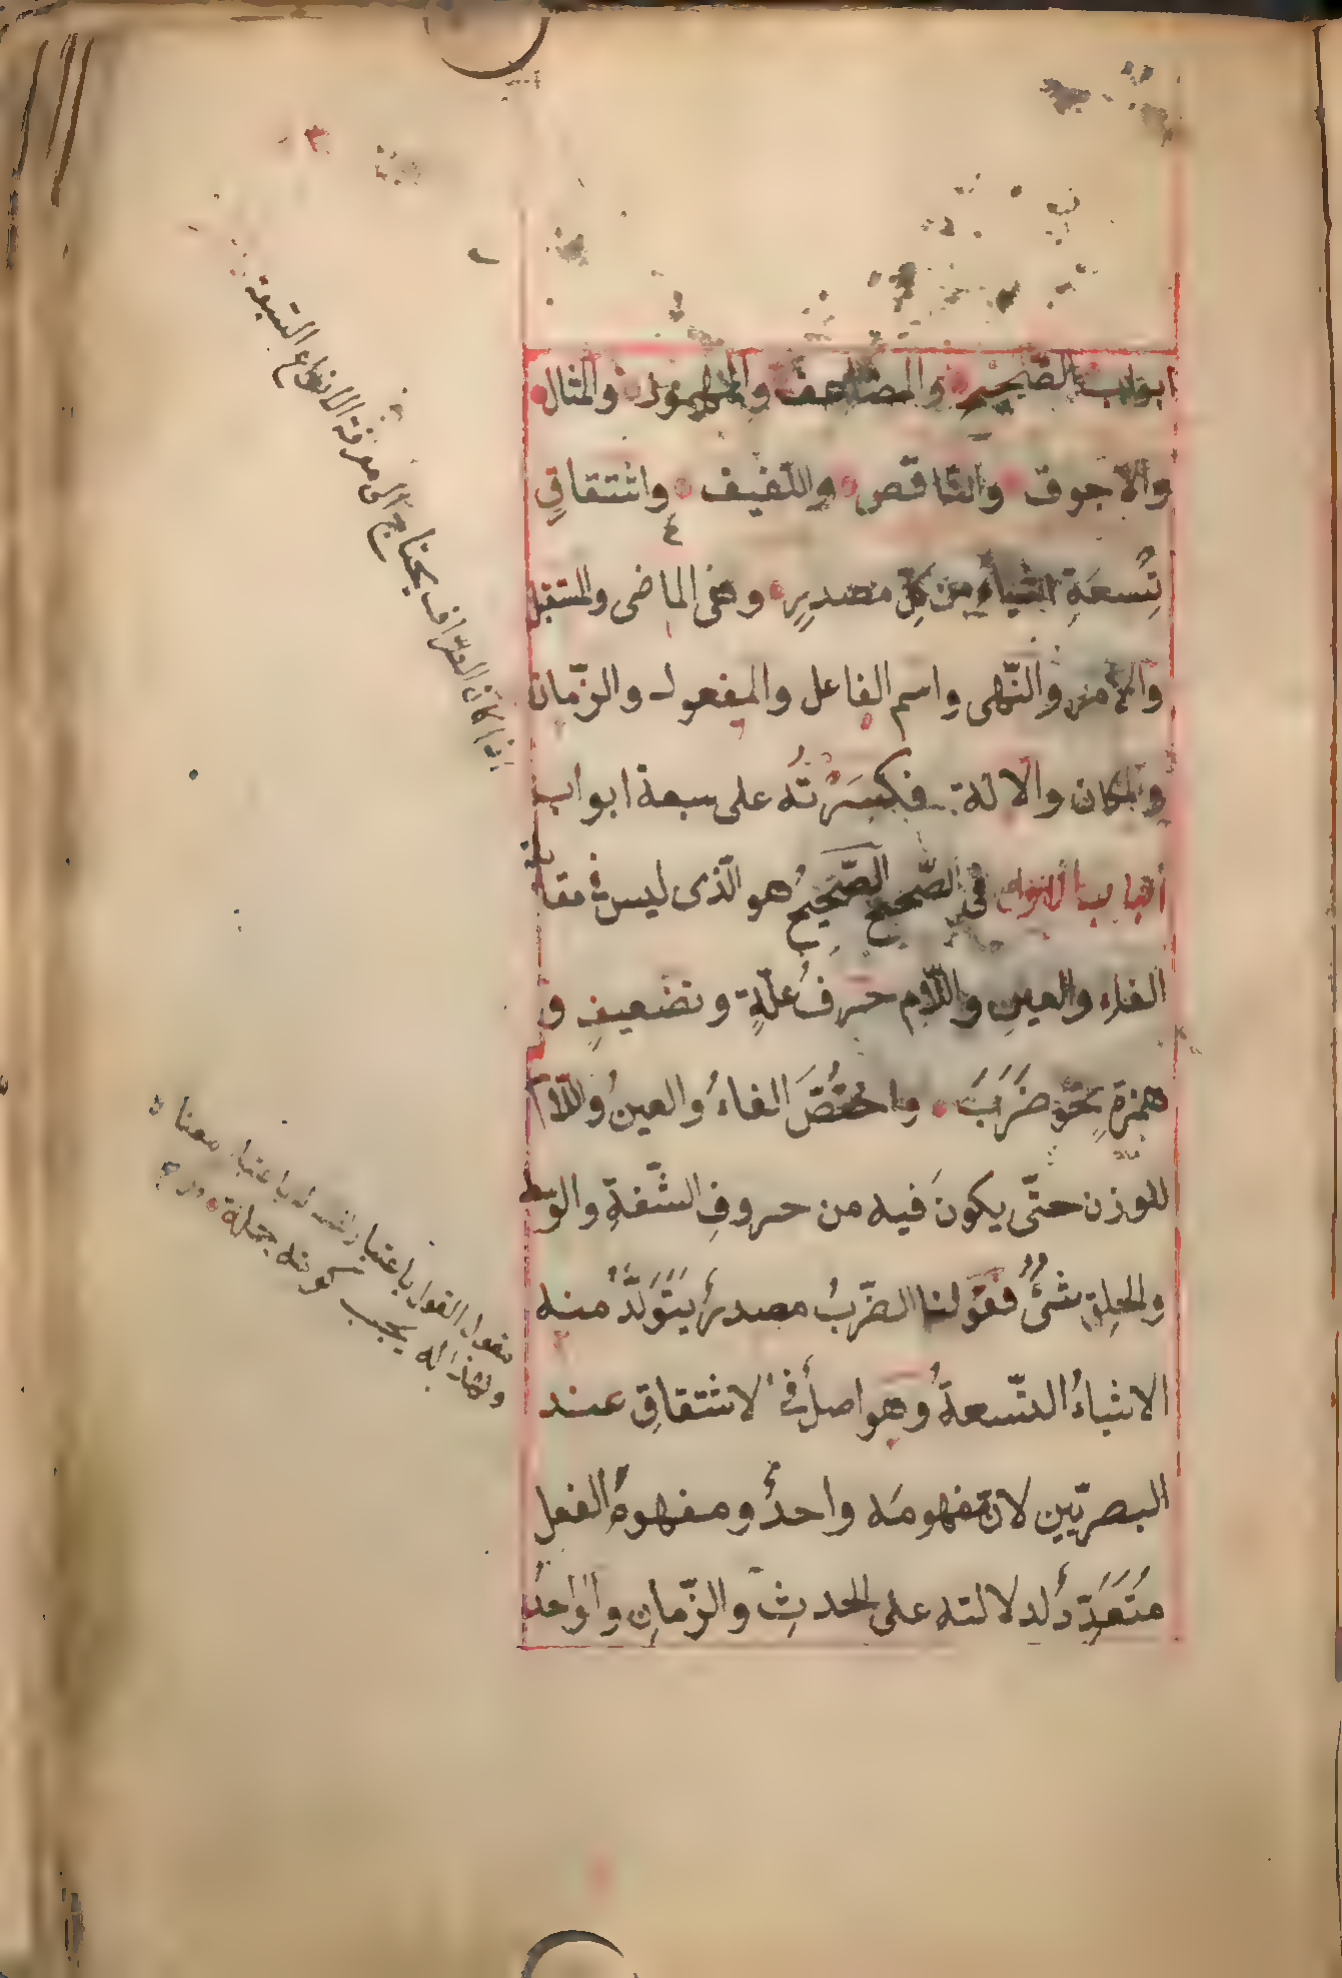 ابواب الصّحيح والمضاعف والمهموز والمثال
والاجوف والنّاقص واللّفيف واشتقاقِ
تِسعَةِ اشياءٍ من كلّ مصدرٍ وهى الماضى والمستقبل
والامر والنّهى واسم الفاعل والمفعول والزّمان
والمكان والالة فكسَرْتُه على سبعة ابواب
الباب الاول فى الصّحيح الصّحيحُ هو الّذى ليس فى مقابلة
الفاء والعينِ واللّامِ حرفُ علّةٍ وتضعيفٍ و
همزةٍ نحو ضَرَبَ واختُصَّ الفاءُ والعينُ واللّامُ
للوزن حتّى يكونَ فيه من حروفِ الشّفةِ والوسط
والحلقِ شئٌ فقولنا الضّربُ مصدرٌ يَتَوَلَّدُ منه
الاشياءُ التّسعةُ وهو اصلٌ فى الاشتقاقِ عند
البصريّين لانّ مفهومَه واحدٌ ومفهومُ الفعل
مُتَعَدِّدٌ لدلالته على الحدثِ والزّمانِ والواحدُ
اذا كان الصّرّاف يحتاج الى معرفة الانواع السّبعة
مقول القول باعتبار لا باعتبار معناه
ولهذا يجب كونه جملة